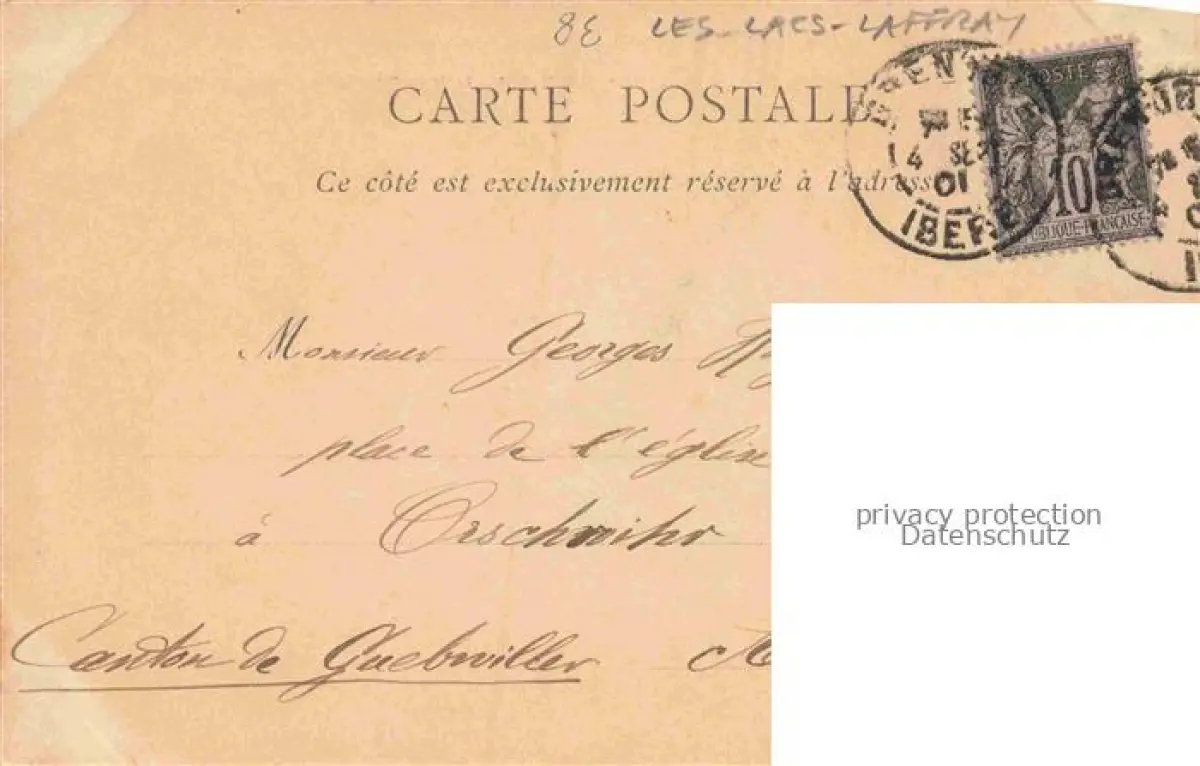 38 LES LACS - LAFFRAY
CARTE POSTALE
Ce côté est exclusivement réservé à l'adresse
14 SE
01
POSTE
10
RÉPUBLIQUE-FRANÇAISE
Monsieur Georges
place de l'église
à Orschwihr
Canton de Guebwiller
privacy protection
Datenschutz